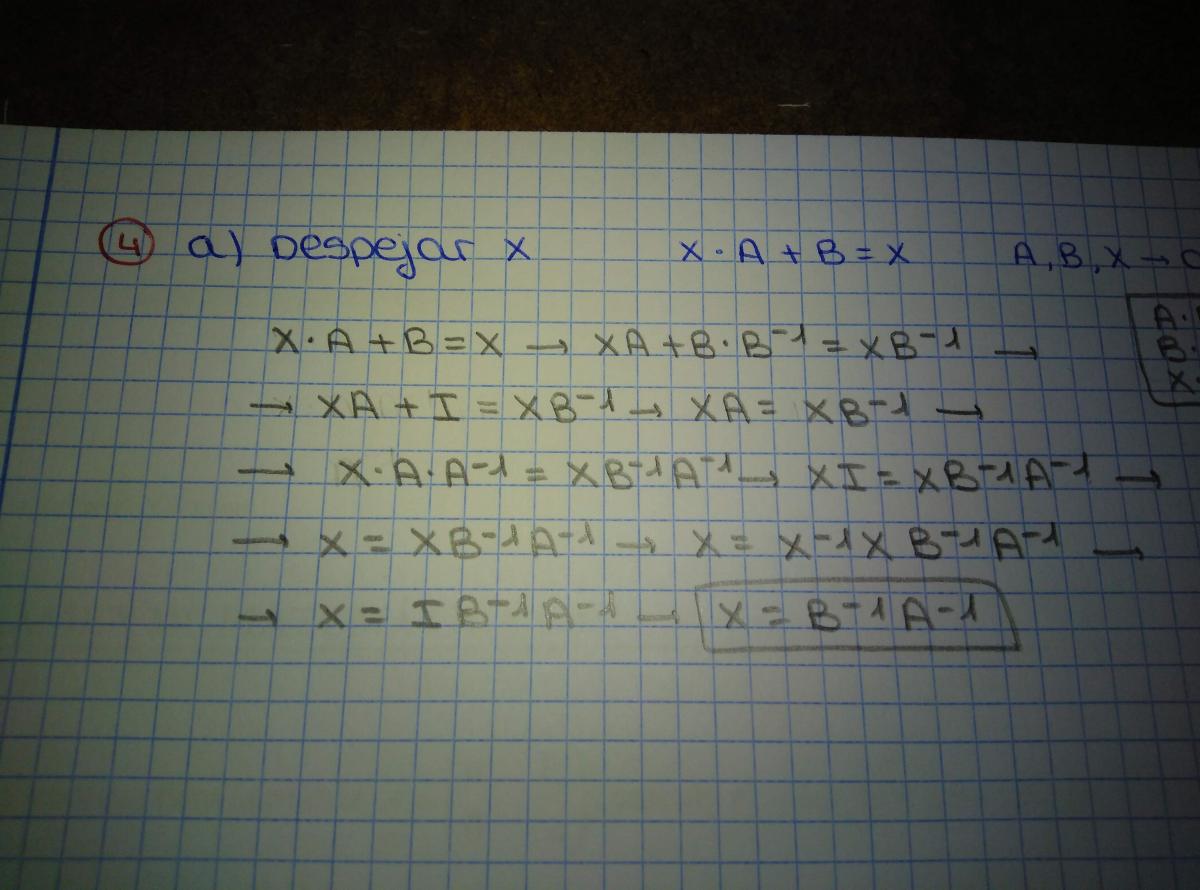 4 a) Despejar X X · A + B = X A, B, X →
X · A + B = X → XA + B · B⁻¹ = XB⁻¹ →
→ XA + I = XB⁻¹ → XA = XB⁻¹ →
→ X · A · A⁻¹ = XB⁻¹A⁻¹ → XI = XB⁻¹A⁻¹ →
→ X = XB⁻¹A⁻¹ → X = X⁻¹X B⁻¹A⁻¹ →
→ X = I B⁻¹A⁻¹ → X = B⁻¹A⁻¹
A·
B·
X·